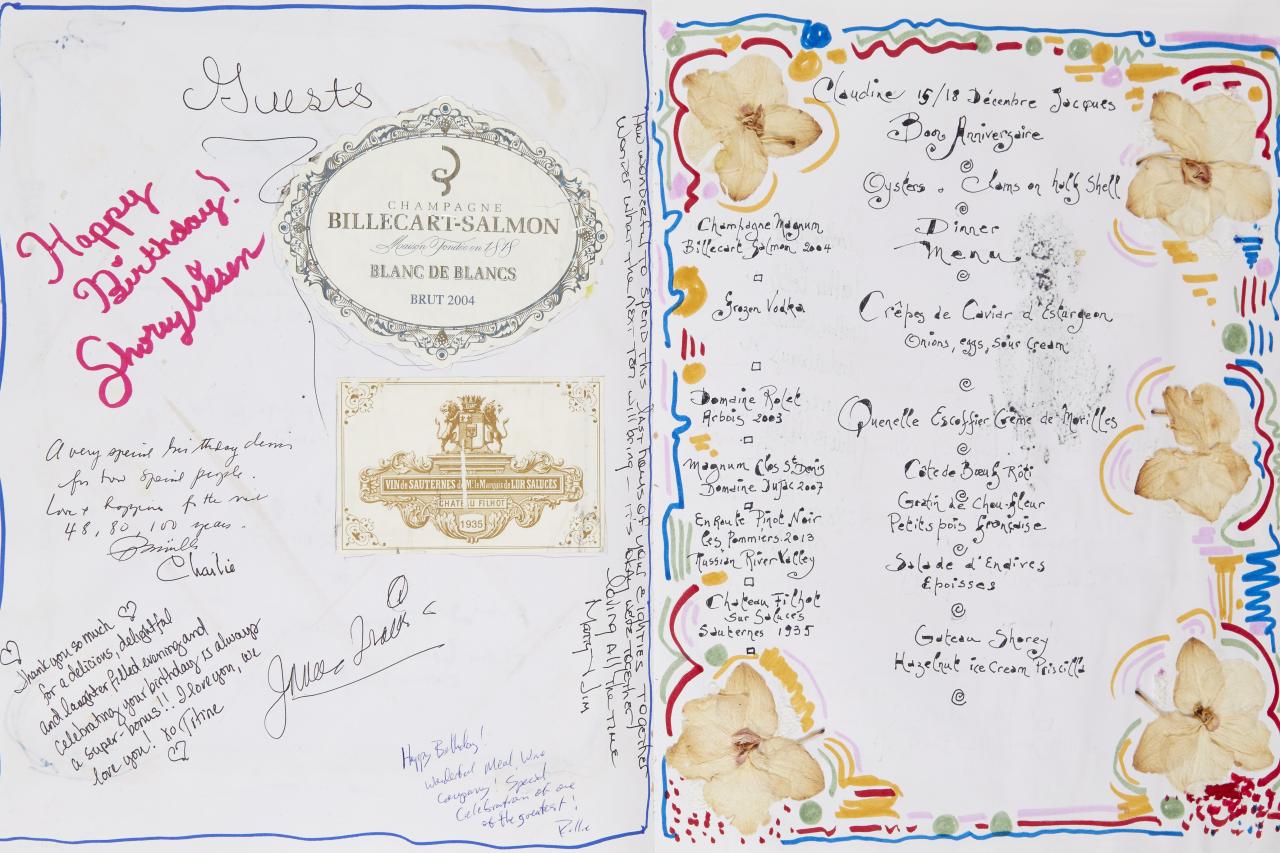 Guests
Happy
Birthday!
Shorey
CHAMPAGNE
BILLECART-SALMON
Maison Fondée en 1818
BLANC DE BLANCS
BRUT 2004
VIN de SAUTERNES de Mr. le Marquis de LUR SALUCES
CHATEAU FILHOT
1935
A very special birthday dinner
for two special people.
Love & hopping for the next
48, 80, 100 years.
Priscilla
Charlie
Thank you so much
for a delicious, delightful
and laughter filled evening and
celebrating your birthday is always
a super-bonus!! I love you, we
love you! xo Titine
Happy Birthday!
Wonderful Meal, Wine
Company! Special
Celebration of one
of the greatest!
How wonderful to spend this last hours of your eighties together
Wonder what the next ten will bring - its okay if were together
Loving all the time
Jim
Claudine 15/18 Décembre Jacques
Bon Anniversaire
Oysters & Clams on half Shell
Dinner
Menu
Champagne Magnum
Billecart Salmon 2004
Frozen Vodka
Crêpes de Caviar d'Esturgeon
Onions, eggs, sour cream
Domaine Rolet
Arbois 2003
Quenelle Escoffier Crème de Morilles
Magnum Clos St Denis
Domaine Dujac 2007
Côte de Bœuf Rôti
EnRoute Pinot Noir
Les Pommiers. 2013
Russian River Valley
Gratin de Chou-fleur
Petits pois Française
Salade d'Endives
Epoisses
Chateau Filhot
Sur Saluces
Sauternes 1935
Gateau Shorey
Hazelnut ice Cream Priscilla